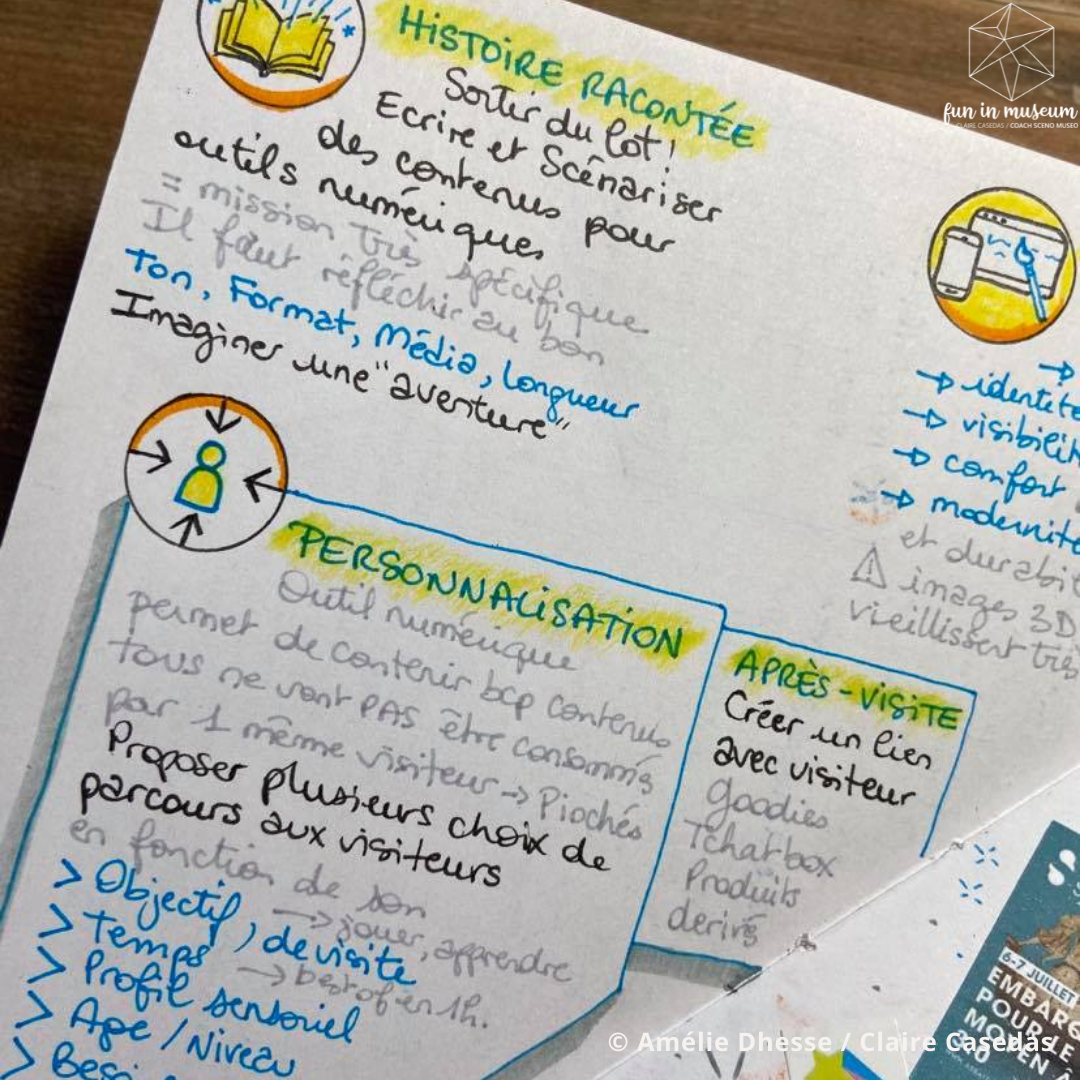 HISTOIRE RACONTÉE
Sortir du lot!
Ecrire et Scénariser
des contenus pour
outils numériques
= mission très spécifique
Il faut réfléchir au bon
Ton, Format, Média, longueur
Imaginer une "aventure"
PERSONNALISATION
Outil numérique
permet de contenir bcp contenus
tous ne vont PAS être consommés
par 1 même visiteur → Piochés
Proposer plusieurs choix de
parcours aux visiteurs
en fonction de son
> Objectif, de visite
→ jouer, apprendre
> Temps
→ best of en 1h.
> Profil sensoriel
> Age / Niveau
> Besi
APRÈS-VISITE
Créer un lien
avec visiteur
goodies
Tchatbox
Produits
derivés
→
→ identité
→ visibilit
→ comfort
→ modernité
et durabi
⚠ images 3D
vieillissent très
fun in museum
CLAIRE CASEDAS / COACH SCENO MUSEO
6-7 JUILLET
EMBARQ
POUR LE
MOYEN Â
© Amélie Dhesse / Claire Casedas